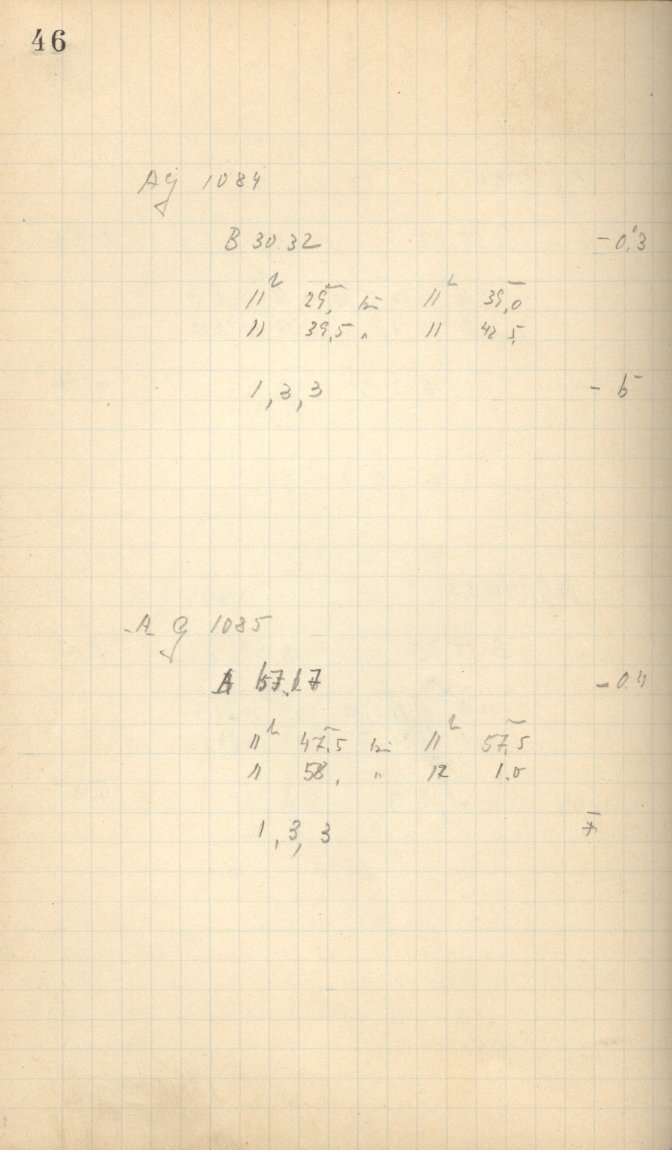 46
AG 1084
B 3032 -0,3
11h 29, bis 11h 39,0
11 39,5 " 11 42 5,
1,3,3 - 6
AG 1085
A 57.17 -0.4
11h 47,5 bis 11h 57,5
11 58, " 12 1.0
1,3,3 7